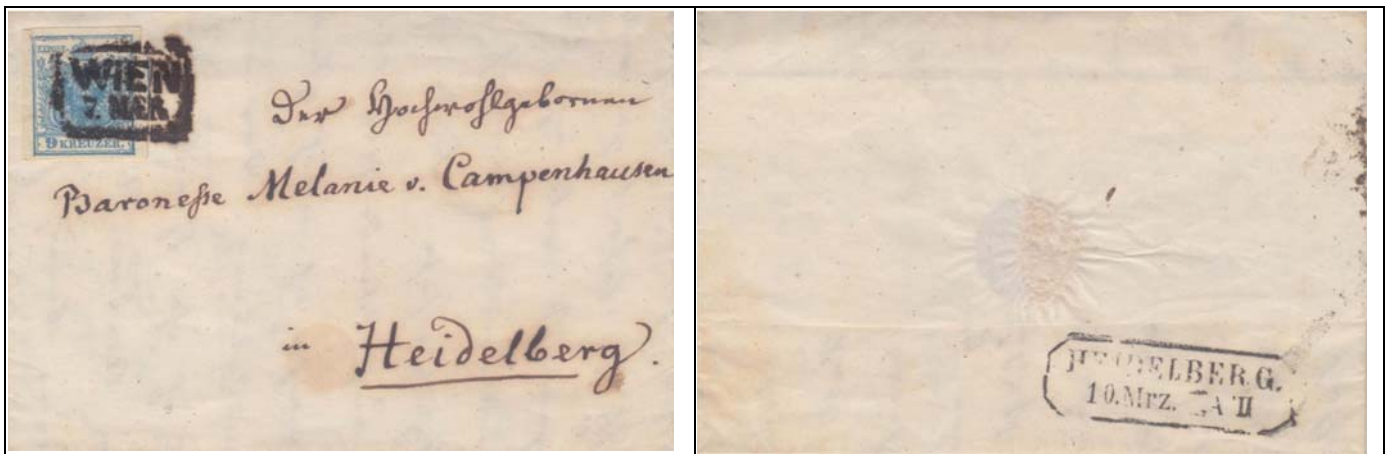 WIEN
7. MÆR.
9 KREUZER.
Der Hochwohlgebornen
Baronesse Melanie v. Campenhausen
in Heidelberg.
HEIDELBERG.
10. Mrz.